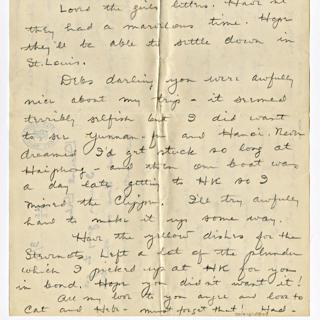 Loved the girls letters. Have he
they had a marvelous time. Hope
they'll be able to settle down in
St. Louis.
Debs darling you were awfully
nice about my trip - it seemed
terribly selfish but I did want
to see Yunnan-fu and Hanoi. Never
dreamed I'd get stuck so long at
Haiphong - and then our boat was
a day late getting to HK so I
missed the Clipper. I'll try awfully
hard to make it up some way.
Have the yellow dishes for the
Left a lot of the plunder
which I picked up at HK for you
in bond. Hope you didn't want it!
All my love to you angel and love to
Cat and Hebe - must forget that! Had -